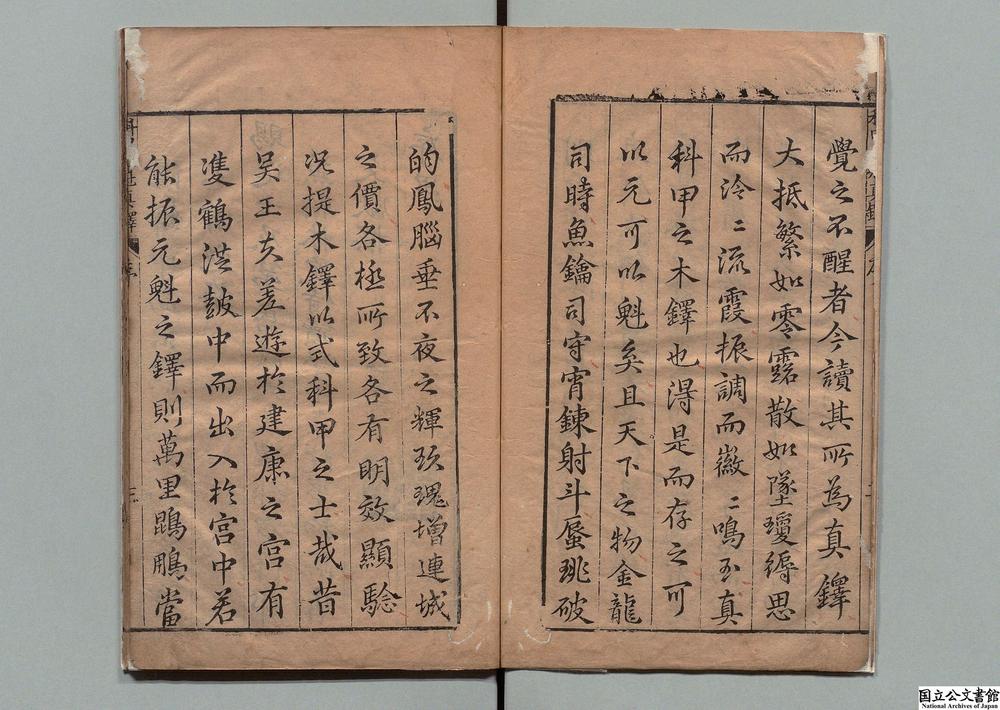 覺之不醒者今讀其所為真鐸
大抵繁如零露散如墜瓊縟思
而泠〻流霞振調而徽〻鳴玉真
科甲之木鐸也得是而存之可
以元可以魁矣且天下之物金龍
司時魚鑰司守宵鍊射斗蜃珧破
的鳳腦垂不夜之輝玖瑰增連城
之價各極所致各有明效顯驗
况提木鐸以式科甲之士哉昔
吴王夫差遊於建康之宫有
隻鶴洪皷中而出入於宫中若
能振元魁之鐸則萬里鵾鵬當
国立公文書館
National Archives of Japan